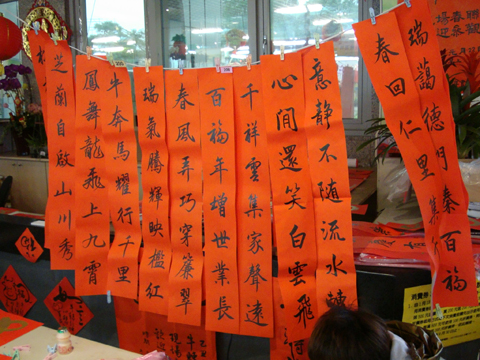 瑞藹德門秦百福
春回仁里集
意靜不随流水轉
心閒還笑白雲飛
千祥雲集家聲遠
百福年增世業長
春風弄巧穿簾翠
瑞氣騰輝映檻紅
牛奔馬耀行千里
鳳舞龍飛上九霄
芝蘭自啟山川秀
消費券